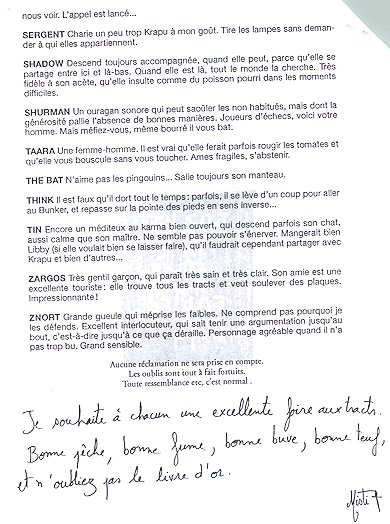 nous voir. L'appel est lancé...
SERGENT Charie un peu trop Krapu à mon goût. Tire les lampes sans deman-
der à qui elles appartiennent.
SHADOW Descend toujours accompagnée, quand elle peut, parce qu'elle se
partage entre ici et là-bas. Quand elle est là, tout le monde la cherche. Très
fidèle à son acète, qu'elle insulte comme du poisson pourri dans les moments
difficiles.
SHURMAN Un ouragan sonore qui peut saoûler les non habitués, mais dont la
générosité pallie l'absence de bonnes manières. Joueurs d'échecs, voici votre
homme. Mais méfiez-vous, même bourré il vous bat.
TAARA Une femme-homme. Il est vrai qu'elle ferait parfois rougir les tomates et
qu'elle vous bouscule sans vous toucher. Ames fragiles, s'abstenir.
THE BAT N'aime pas les pingouins... Salie toujours son manteau.
THINK Il est faux qu'il dort tout le temps : parfois, il se lève d'un coup pour aller
au Bunker, et repasse sur la pointe des pieds en sens inverse...
TIN Encore un méditeux au karma bien ouvert, qui descend parfois son chat,
aussi calme que son maître. Ne semble pas pouvoir s'énerver. Mangerait bien
Libby (si elle voulait bien se laisser faire), qu'il faudrait cependant partager avec
Krapu et bien d'autres...
ZARGOS Très gentil garçon, qui paraît très sain et très clair. Son amie est une
excellente touriste : elle trouve tous les tracts et veut soulever des plaques.
Impressionnante !
ZNORT Grande gueule qui méprise les faibles. Ne comprend pas pourquoi je
les défends. Excellent interlocuteur, qui sait tenir une argumentation jusqu'au
bout, c'est-à-dire jusqu'à ce que ça déraille. Personnage agréable quand il n'a
pas trop bu. Grand sensible.
Aucune réclamation ne sera prise en compte.
Les oublis sont tout à fait fortuits.
Toute ressemblance etc, c'est normal .
Je souhaite à chacun une excellente foire aux tracts.
Bonne pêche, bonne fume, bonne buve, bonne teuf,
et n'oubliez pas le livre d'or.